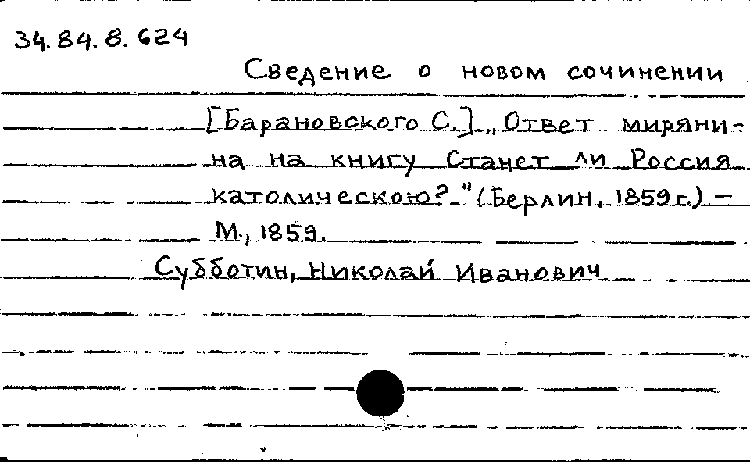 34.84.8.624
Сведение о новом сочинении
[Барановского С.] „Ответ миряни-
на на книгу Станет ли Россия
католическою?" (Берлин, 1859 г.) –
М., 1859.
Субботин, Николай Иванович